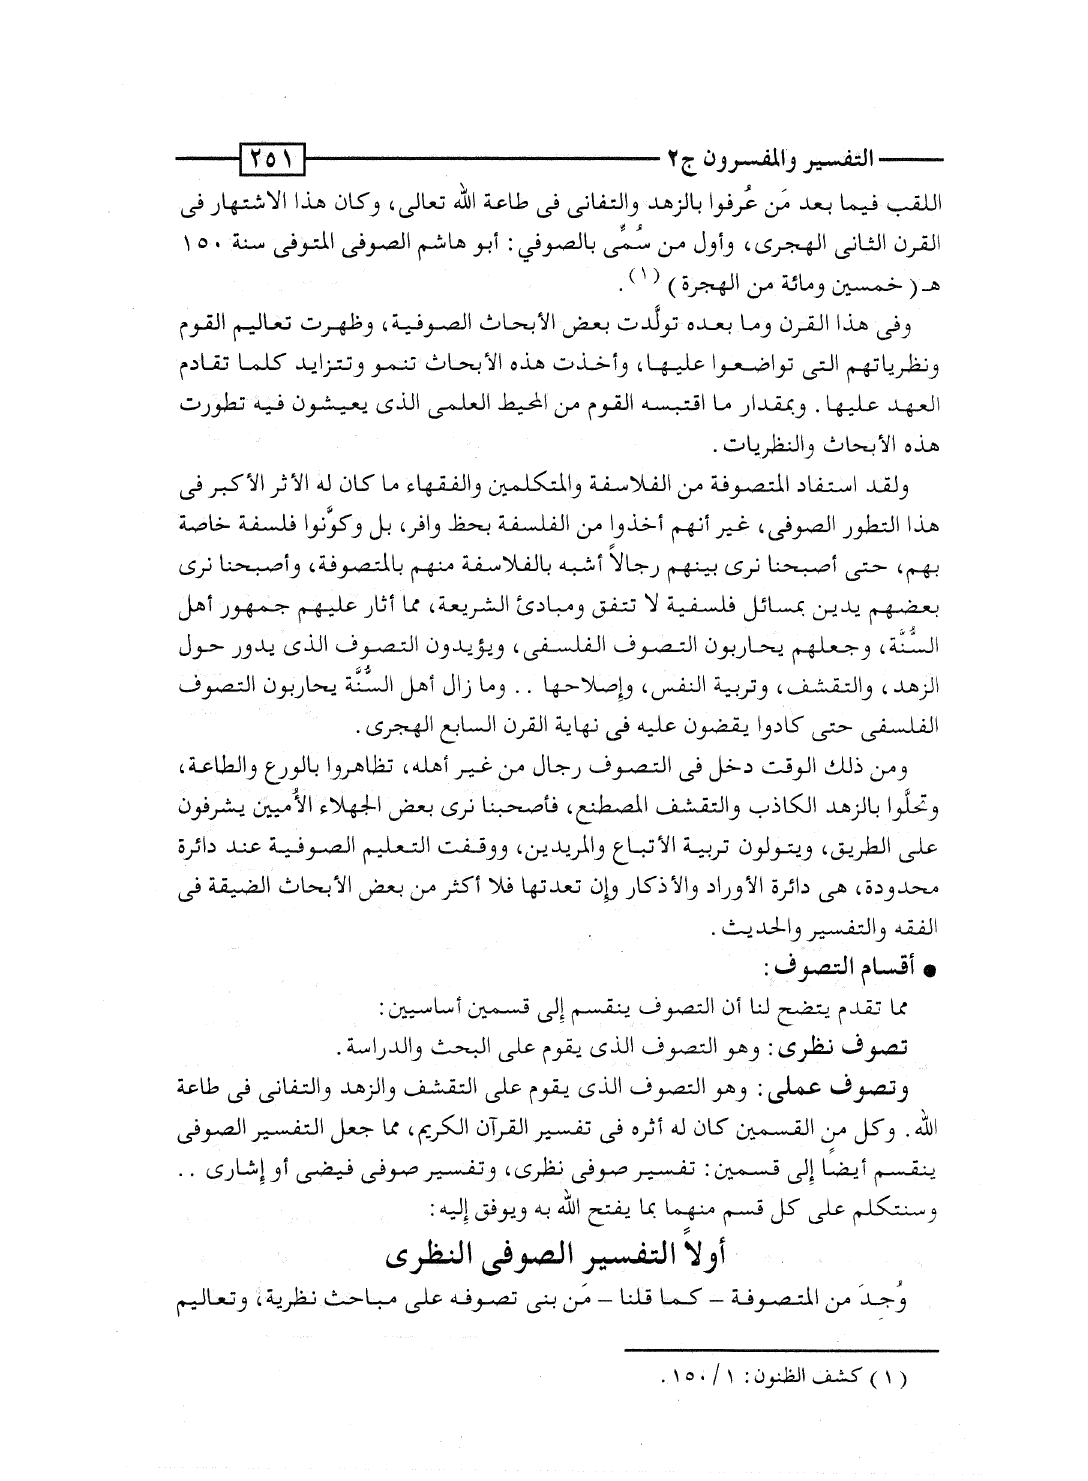 التفسير والمفسرون ج٢ ٢٥١
اللقب فيما بعد مَن عُرفوا بالزهد والتفانى فى طاعة الله تعالى، وكان هذا الاشتهار فى
القرن الثانى الهجرى، وأول من سُمِّى بالصوفي: أبو هاشم الصوفى المتوفى سنة ١٥٠
هـ (خمسين ومائة من الهجرة) (١).
وفى هذا القرن وما بعده تولَّدت بعض الأبحاث الصوفية، وظهرت تعاليم القوم
ونظرياتهم التى تواضعوا عليها، وأخذت هذه الأبحاث تنمو وتتزايد كلما تقادم
العهد عليها. وبمقدار ما اقتبسه القوم من المحيط العلمى الذى يعيشون فيه تطورت
هذه الأبحاث والنظريات.
ولقد استفاد المتصوفة من الفلاسفة والمتكلمين والفقهاء ما كان له الأثر الأكبر فى
هذا التطور الصوفى، غير أنهم أخذوا من الفلسفة بحظ وافر، بل وكوَّنوا فلسفة خاصة
بهم، حتى أصبحنا نرى بينهم رجالاً أشبه بالفلاسفة منهم بالمتصوفة، وأصبحنا نرى
بعضهم يدين بمسائل فلسفية لا تتفق ومبادئ الشريعة، مما أثار عليهم جمهور أهل
السُّنَّة، وجعلهم يحاربون التصوف الفلسفى، ويؤيدون التصوف الذى يدور حول
الزهد، والتقشف، وتربية النفس، وإصلاحها .. وما زال أهل السُّنَّة يحاربون التصوف
الفلسفى حتى كادوا يقضون عليه فى نهاية القرن السابع الهجرى.
ومن ذلك الوقت دخل فى التصوف رجال من غير أهله، تظاهروا بالورع والطاعة،
وتحلَّوا بالزهد الكاذب والتقشف المصطنع، فأصحبنا نرى بعض الجهلاء الأُميين يشرفون
على الطريق، ويتولون تربية الأتباع والمريدين، ووقفت التعليم الصوفية عند دائرة
محدودة، هى دائرة الأوراد والأذكار وإن تعدتها فلا أكثر من بعض الأبحاث الضيقة فى
الفقه والتفسير والحديث.
● أقسام التصوف:
مما تقدم يتضح لنا أن التصوف ينقسم إلى قسمين أساسيين:
تصوف نظرى: وهو التصوف الذى يقوم على البحث والدراسة.
وتصوف عملى: وهو التصوف الذى يقوم على التقشف والزهد والتفانى فى طاعة
الله. وكل من القسمين كان له أثره فى تفسير القرآن الكريم، مما جعل التفسير الصوفى
ينقسم أيضًا إلى قسمين: تفسير صوفى نظرى، وتفسير صوفى فيضى أو إشارى ..
وسنتكلم على كل قسم منهما بما يفتح الله به ويوفق إليه:
أولاً التفسير الصوفى النظرى
وُجِدَ من المتصوفة - كما قلنا - مَن بنى تصوفه على مباحث نظرية، وتعاليم
(١) كشف الظنون: ١/١٥٠.